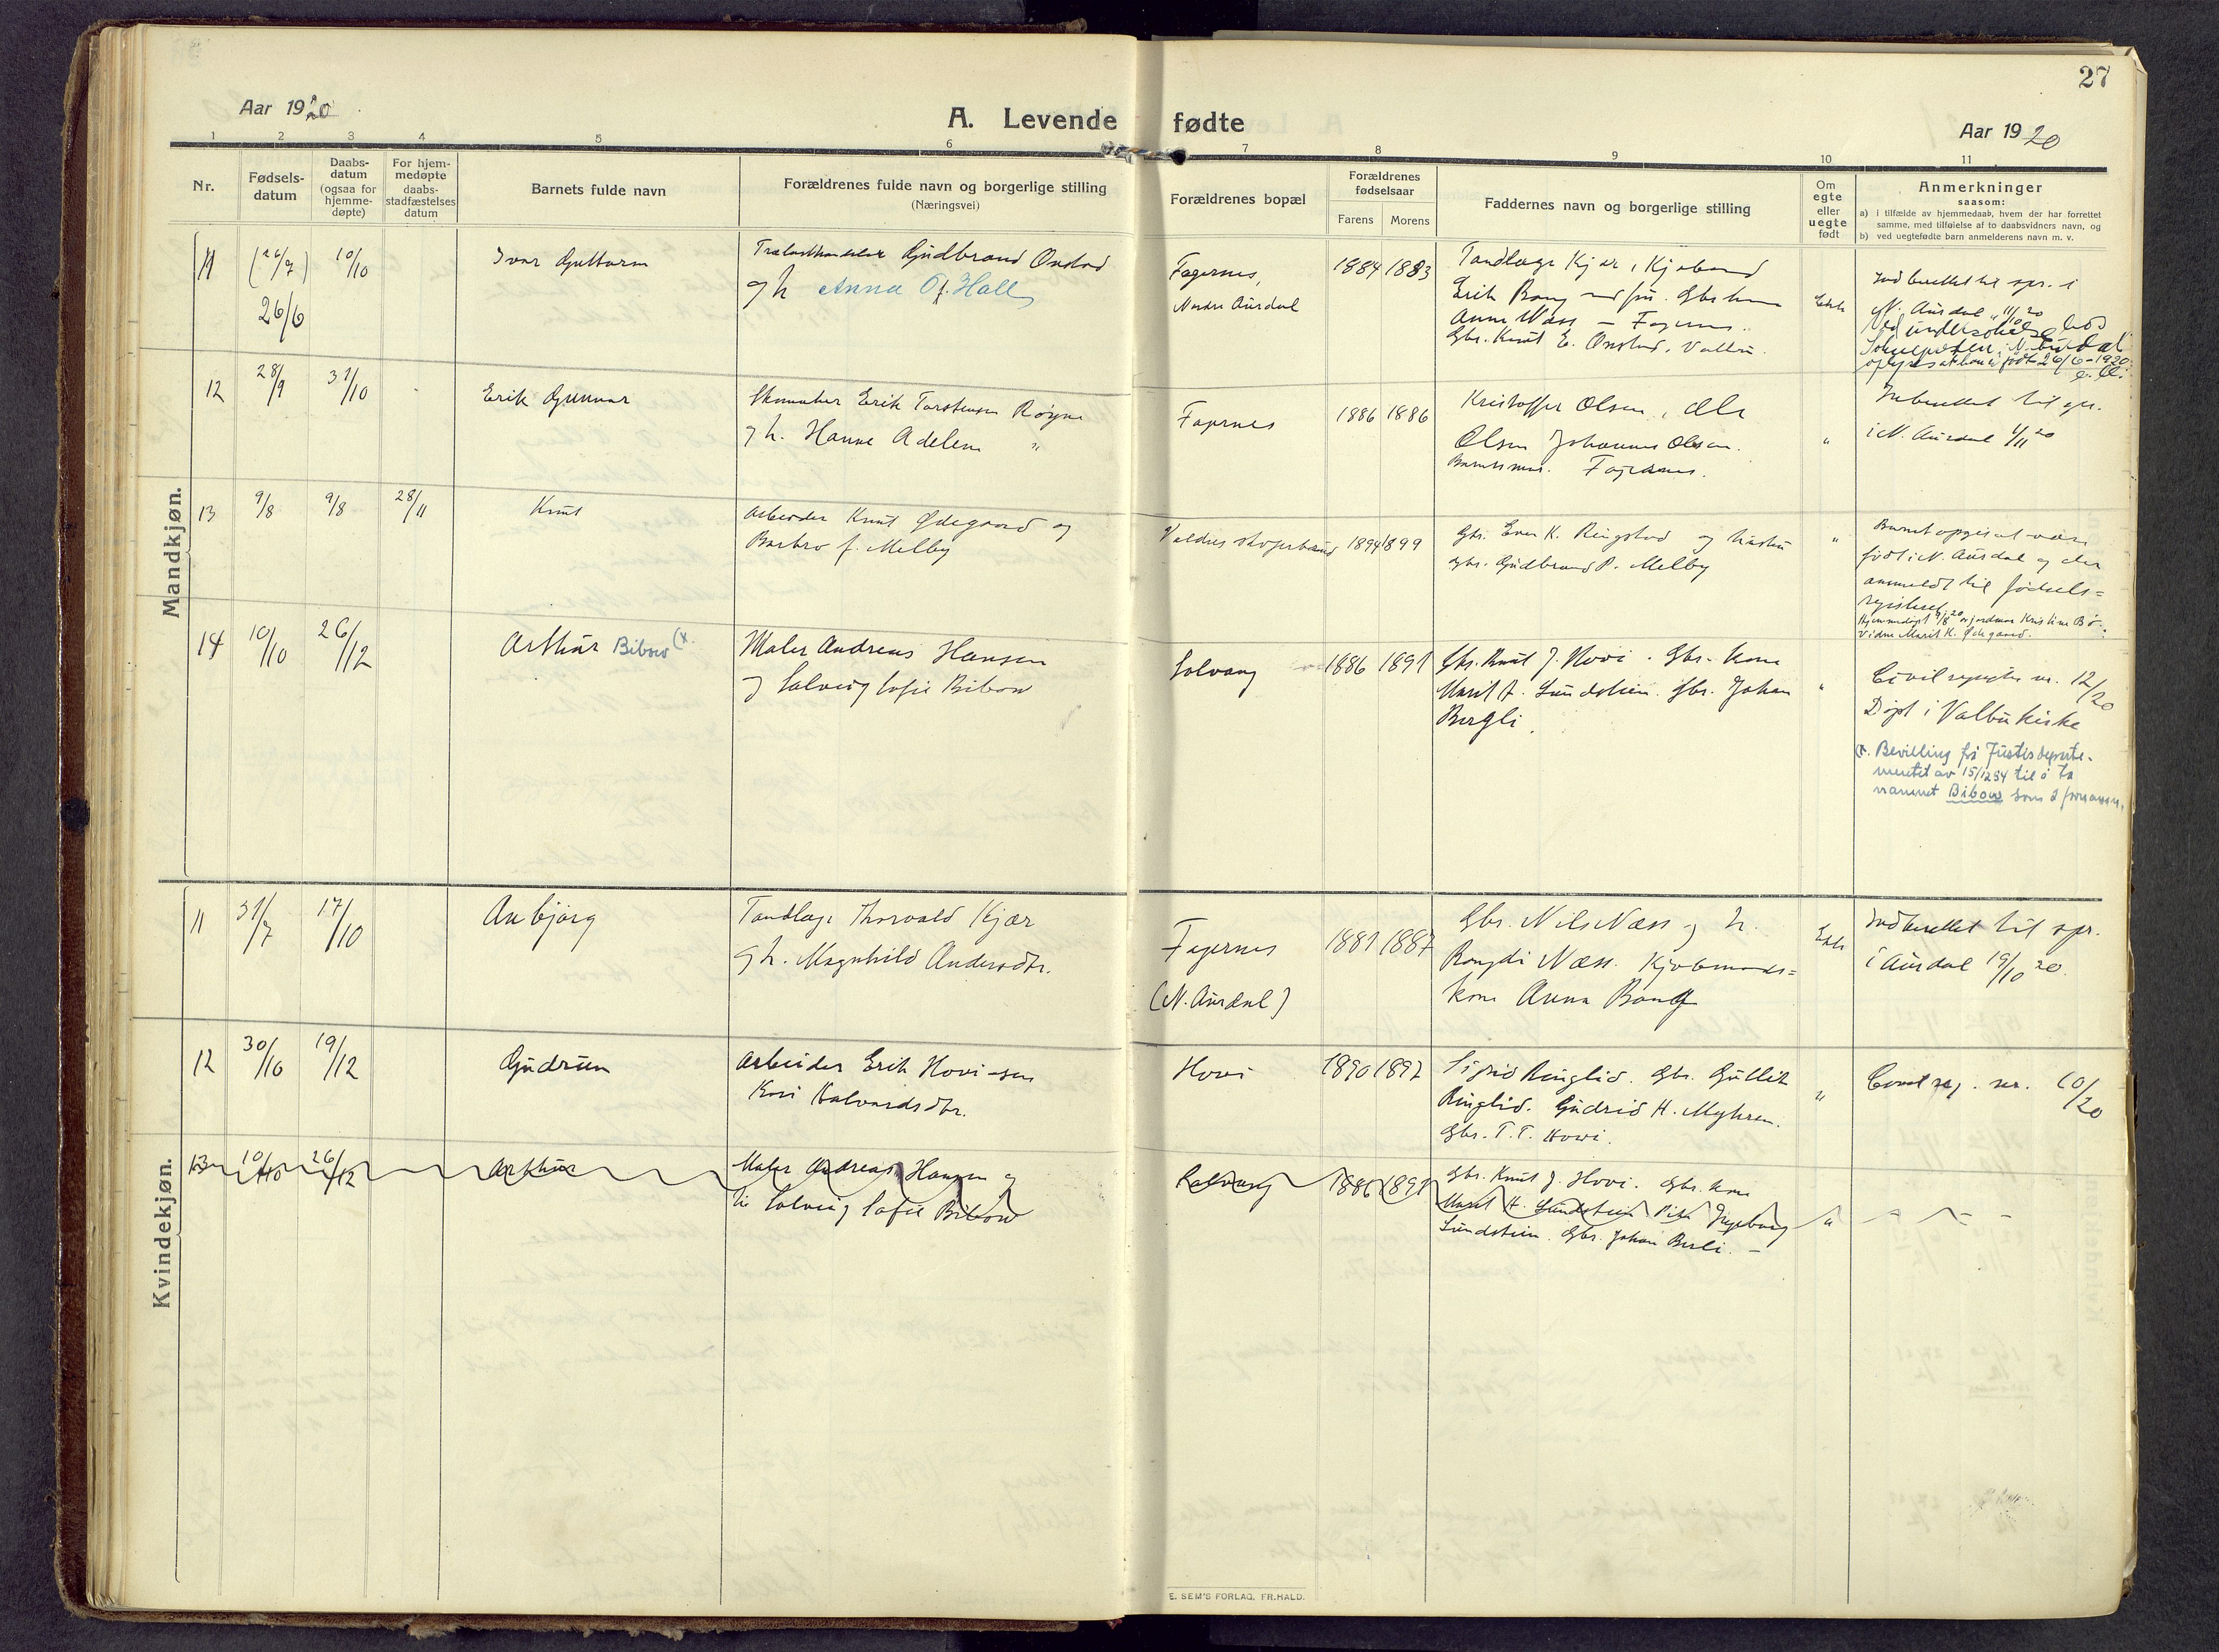 27
Aar 1920
A. Levende fødte
Aar 1920
1 2 3 4 5 6 7 8 9 10 11
Nr.
Fødsels-
datum
Daabs-
datum
(ogsaa for
hjemme-
døpte)
For hjem-
medøpte
daabs-
stadfæstelses
datum
Barnets fulde navn
Forældrenes fulde navn og borgerlige stilling
(Næringsvei)
Forældrenes bopæl
Forældrenes
fødselsaar
Farens Morens
Faddernes navn og borgerlige stilling
Om
egte
eller
uegte
født
Anmerkninger
saasom:
a) i tilfælde av hjemmedaab, hvem der har forrettet
samme, med tilføielse af to daabsvidners navn, og
b) ved uegtefødte barn anmelderens navn m. v.
Mandkjøn.
11 (26/7) 10/10
26/6
Ivar Guttorm
Trælasthandeler Gudbrand Onstad
og h Anna O f. Hall
Fagernes,
Nordre Aurdal
1884 1883
Tandlæge Kjær, Kjøbmd
Erik Bang
Anna Næss — Fagernes.
Gbr. Knut E. Onstad,
Ekte
Indberettet til spr. i
N. Aurdal 11/10 20
Ved undersøkelse hos
Soknepresten i N. Aurdal
født 26/6-1920.
12 28/9 31/10
Erik Gunnar
Skomaker Erik Torstensen Røyne
og h. Hanne Adelen "
Fagernes
1886 1886
Kristoffer Olsen,
Olsen Johannes Olsen.
Fagernes.
"
Inberettet til spr.
i N. Aurdal 1/11 20
13 9/8 9/8 28/11
Knut
Arbeider Knut Ødegaard og
Barbro f. Melby
Valdres skogerbrand
1894 1899
Gbr. Even K. Ringstad og hustru
gbr. Gudbrand P. Melby
"
Barnet opgis at være
født i N. Aurdal og der
anmeldt til fødsels=
registeret
Hjemmedøpt 9/8 20 av jordmor Kristine Bø.
Vidne Marit K. Ødegaard.
14 10/10 26/12
Arthur Bibow (x.
Maler Andreas Hansen
og Solveig Sofie Bibow
Solvang
1886 1891
Gbr. Knut J. Hovi. Gbr. kone
Marit H. Sundstien. Gbr. Johan
Bergli.
"
Civilregister nr. 12/20
Døpt i Valbu kirke
(x. Bevilling fra Justisdeparte-
mentet av 15/12 34 til å ta
navnet Bibow som 2 fornavn.
Kvindekjøn.
11 31/7 17/10
Aubjørg
Tandlæge Thorvald Kjær
og h. Magnhild Andersdtr.
Fagernes
(N. Aurdal)
1881 1887
Gbr. Nils Næss og h.
Rangdi Næss. Kjøbmands=
kone Anna Bang
Ekte
Indberettet til spr.
i Aurdal 19/10 20.
12 30/10 19/12
Gudrun
Arbeider Erik Hovi
Kari Halvardsdtr.
Hovi
1890 1897
Sigrid Ringlid. Gbr. Gullik
Ringlid. Gudrid H. Myhren.
Gbr. T. T. Hovi.
"
Civil reg. nr. 10/20
13 10/10 26/12
Arthur
Maler Andreas Hansen og
h. Solveig Sofie Bibow
Solvang
1886 1891
Gbr. Knut J. Hovi. Gbr. kone
Marit H. Sundstien Pike Ingeborg
Sundstien. Gbr. Johan Berli. —
"
E. SEM'S FORLAG, FR.HALD.